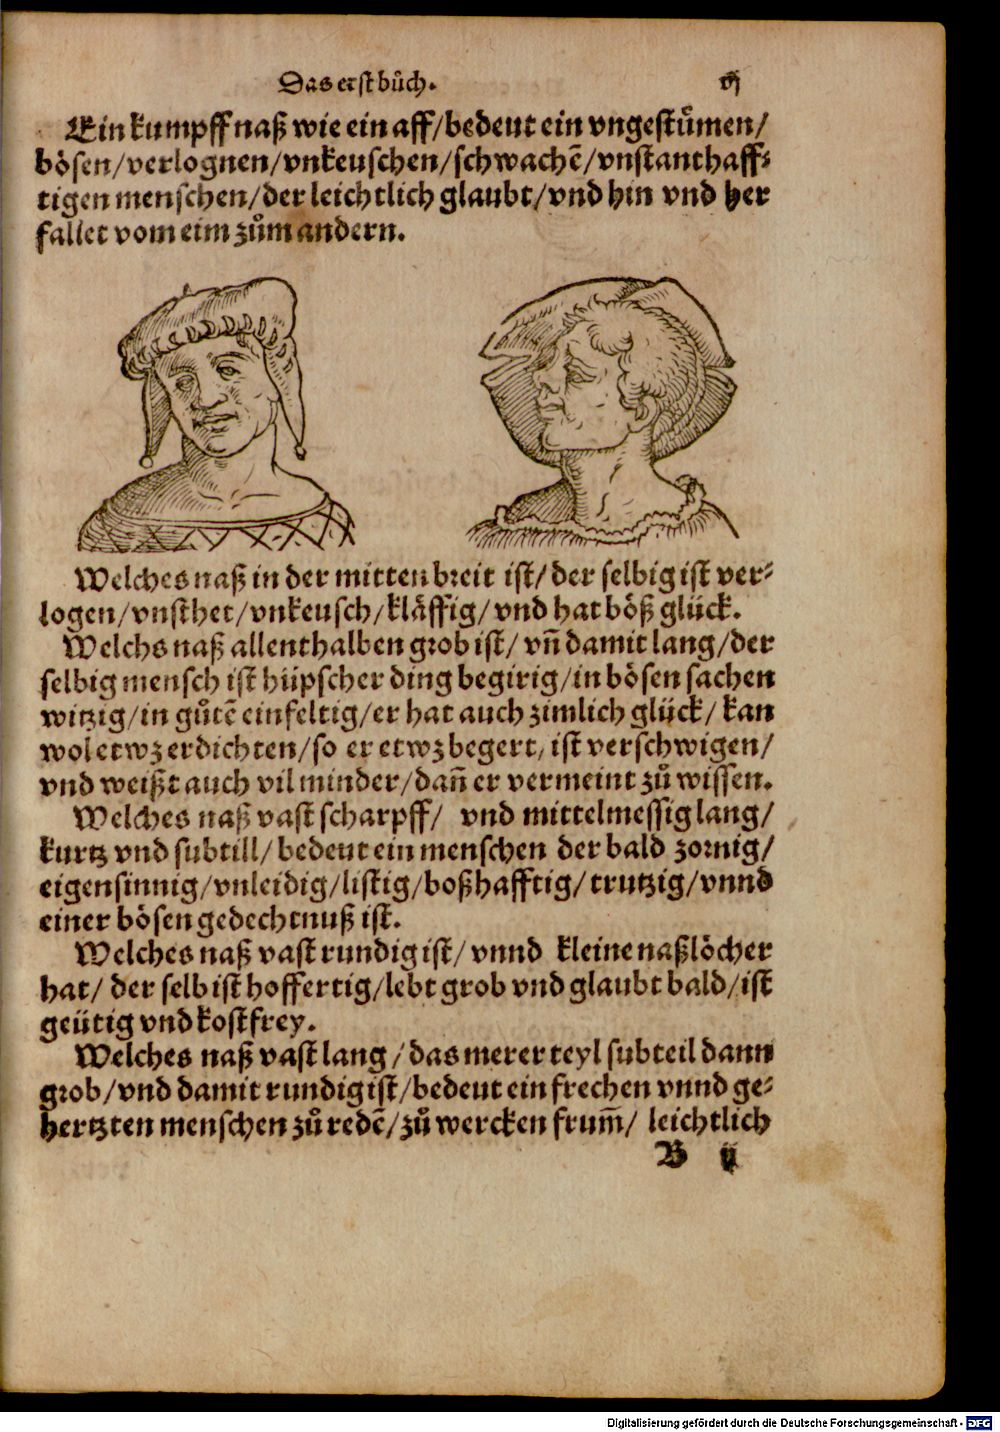 Das erst bůch. vj
Ein kumpff naß wie ein aff/ bedeut ein vngestůmen/
bösen/ verlognen/ vnkeuschen/ schwachē/ vnstanthaff⸗
tigen menschen/ der leichtlich glaubt/ vnd hin vnd her
fallet vom eim zům andern.
Welches naß in der mitten breit ist/ der selbig ist ver⸗
logen/ vnsthet/ vnkeusch/ kläffig/ vnd hat böß glück.
Welchs naß allenthalben grob ist/ vñ damit lang/ der
selbig mensch ist hüpscher ding begirig/ in bösen sachen
witzig/ in gůtē einfeltig/ er hat auch zimlich glück/ kan
wol etwz erdichten/ so er etwz begert/ ist verschwigen/
vnd weißt auch vil minder/ dañ er vermeint zů wissen.
Welches naß vast scharpff/ vnd mittelmessig lang/
kurtz vnd subtill/ bedeut ein menschen der bald zornig/
eigensinnig/ vnleidig/ listig/ boßhafftig/ trutzig/ vnnd
einer bösen gedechtnuß ist.
Welches naß vast rundig ist/ vnnd kleine naßlöcher
hat/ der selb ist hoffertig/ lebt grob vnd glaubt bald/ ist
geütig vnd kostfrey.
Welches naß vast lang/ das merer teyl subteil dann
grob/ vnd damit rundig ist/ bedeut ein frechen vnnd ge⸗
hertzten menschen zů redē/ zů wercken frum̄/ leichtlich
B ij
Digitalisierung gefördert durch die Deutsche Forschungsgemeinschaft - DFG